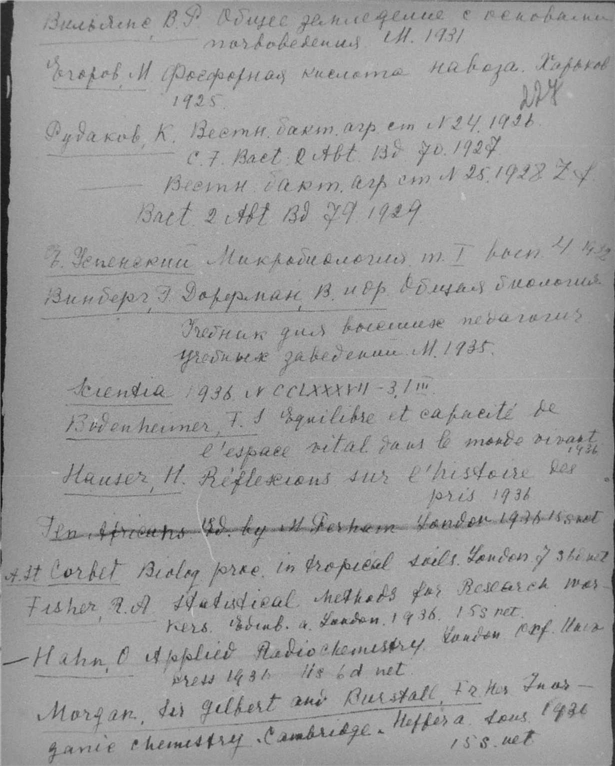 Вильямс, В.Р Общее земледелие с основами
почвоведения М. 1931
Егоров, М Фосфорная кислота навоза. Харьков
1925.
227
Рудаков, К. Вестн. бакт. агр. ст N 24. 1926.
C. f. Bact. 2 Abt. Bd 70. 1927
Вестн. бакт. агр ст N 25. 1928 Z. f.
Bact. 2 Abt Bd 79. 1929
Успенский Микробиология т. I вып. 4
Винберг, Э. Дорфман, В. и др. Общая биология
Учебник для высших педагогич
учебных заведений. М. 1935.
Scientia 1936, N CCLXXXVII - 3, I III
Bodenheimer, F. S Equilibre et capacité de
l'espace vital dans le monde vivant
1936
Hauser, H. Réflexions sur l'histoire des
pris 1936
Ten Africans Ed. by M Perham London 1936 15s net
A. St Corbet Biolog proc. in tropical soils. London 7s 6d net
Fisher, R.A Statistical Methods for Research wor-
kers. Edinb. a. London. 1936. 15s net.
— Hahn, O Applied Radiochemistry London Oxf. Univ
press 1936 11s 6d net
Morgan, Sir Gilbert and Burstall Fr Her Inor-
ganic chemistry. Cambridge. Heffer a. Sons. 1936
15s. net